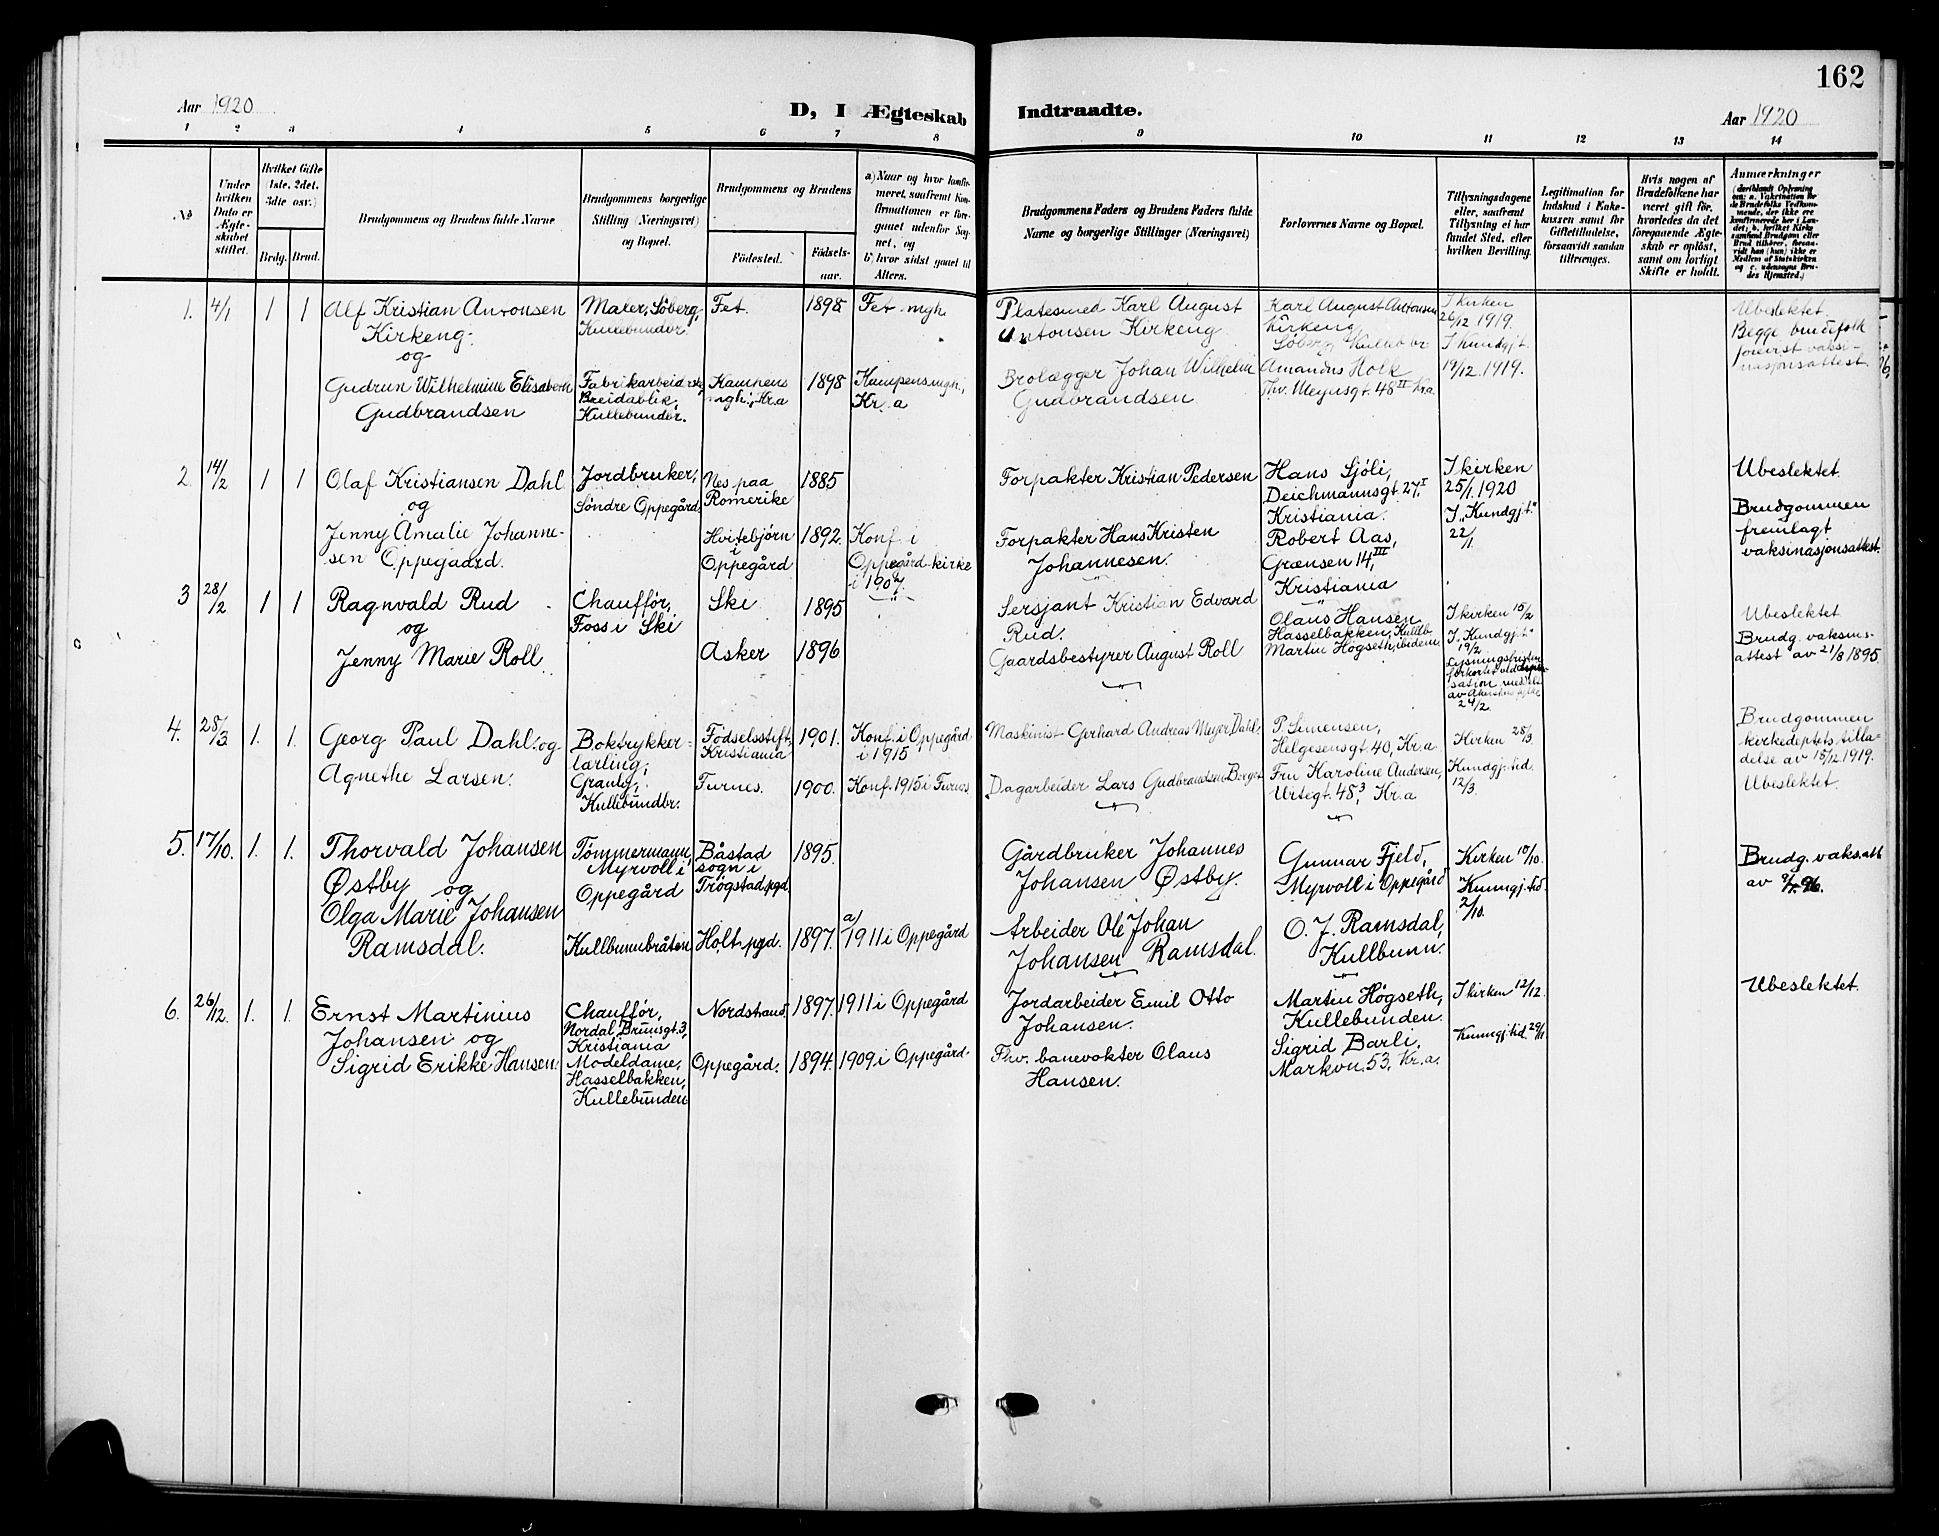 162
Aar 1920
D, I Ægteskab Indtraadte.
Aar 1920
1 2 3 4 5 6 7 8 9 10 11 12 13 14
No
Under hvilken Dato er Ægteskabet stiftet.
Hvilket Gifte 1ste, 2det, 3die osv.)
Brdg. Brud.
Brudgommens og Brudens fulde Navne
Brudgommens borgerlige Stilling (Næringsvei) og Bopæl.
Brudgommens og Brudens
Födested.
Födselsaar.
a) Naar og hvor konfirmeret, saafremt Konfirmationen er foregaaet udenfor Sognet, og
b) hvor sidst gaaet til Alters.
Brudgommens Faders og Brudens Faders fulde Navne og borgerlige Stillinger (Næringsvei)
Forlovernes Navne og Bopæl.
Tillysningsdagene eller, saafremt Tillysning ei har fundet Sted, efter hvilken Bevilling.
Legitimation for Indskud i Enkekassen samt for Giftetilladelse, forsaavidt saadan tiltrænges.
Hvis nogen af Brudefolkene har været gift før, hvorledes da det foregaaende Ægteskab er oplöst, samt om lovligt Skifte er holdt.
Anmærkninger
1. 4/1 1 1 Alf Kristian Antonsen
Kirkeng
og
Gudrun Wilhelmine Elisabeth
Gudbrandsen
Maler, Söberg,
Kullebunder
Fabrikarbeiderske,
Breidablik,
Kullebunder.
Fet. 1898 Fet mgh.
Kampens
mgh., Kr.a
1898 Kampens mgh.,
Kr. a
Platesmed Karl August
Antonsen Kirkeng
Brolægger Johan Wilhelm
Gudbrandsen
Karl August Antonsen
Kirkeng
Söberg
Amandus Holk
Thv. Meyersgt. 48 II Kr.a
I kirken
26/12 1919.
I Kundgj.t.
19/12. 1919.
Ubeslektet.
Begge brudefolk
forevist vaksi-
nasjonsattest.
2. 14/2 1 1 Olaf Kristiansen Dahl
og
Jenny Amalie Johanne-
sen Oppegaard.
Jordbruker,
Søndre Oppegård,
Nes paa
Romerike
1885
Hvitebjörn
i
Oppegård
1892. Konf. i
Oppegård kirke
i 1907.
Forpakter Kristian Pedersen
Forpakter Hans Kristen
Johannesen.
Hans Sjöli,
Deichmannsgt. 27, I
Kristiania.
Robert Aas,
Grænsen 14, III
Kristiania
I kirken
25/1. 1920
I „Kundgj.t."
22/1
Ubeslektet.
Brudgommen
fremlagt
vaksinasjonsattest.
3 28/2 1 1 Ragnvald Rud
og
Jenny Marie Roll
Chauffør,
Foss i Ski
Ski 1895
Asker 1896
Sersjant Kristian Edvard
Rud.
Gaardsbestyrer August Roll
Olaus Hansen
Hasselbakken, Kullb.
Martin Høgseth, ibidem
I kirken 15/2
I „Kundgj.t."
19/2
Lysningsfristen
forkortet ved dispen-
sation meddelt
av Akershus fylke
24/2.
Ubeslektet
Brudg. vaksins-
attest av 21/8 1895
4. 28/3 1. 1. Georg Paul Dahl. og
Agnethe Larsen.
Boktrykker-
lærling,
Granly,
Kullebundbr.
Fødselsstift.
Kristiania
1901. Konf. i Oppegård
i 1915
Furnes. 1900. Konf. 1915 i Furnes
Maskinist Gerhard Andreas Meyer Dahl.
Dagarbeider Lars Gudbrandsen Berger
P. Simensen,
Helgesensgt 40, Kr.a
Fru Karoline Andersen,
Urtegt. 48, 3 Kr.a
Kirken 28/3.
Kundgj. tid.
12/3.
Brudgommen
kirkedeptets tilla-
delse av 15/12 1919.
Ubeslektet.
5. 17/10. 1. 1. Thorvald Johansen
Østby og
Olga Marie Johansen
Ramsdal.
Tømmermann,
Myrvoll i
Oppegård
Kullbunnbråten
Båstad
sogn i
Trøgstad pgd
1895.
Holt pgd. 1897. a/ 1911 i Oppegård
Gårdbruker Johannes
Johansen Østby.
Arbeider Ole Johan
Johansen Ramsdal.
Gunnar Fjeld,
Myrvoll i Oppegård
O. J. Ramsdal,
Kullbunn.
Kirken 10/10.
Kunngj. tid.
2/10.
Brudg. vaks.att
av 96.
6. 26/12. 1. 1. Ernst Martinius
Johansen og
Sigrid Erikke Hansen.
Chauffør,
Nordal Brunsgt. 3,
Kristiania
Modeldame,
Hasselbakken,
Kullebunden
Nordstrand 1897. 1911 i Oppegård
Oppegård. 1894. 1909 i Oppegård.
Jordarbeider Emil Otto
Johansen.
Fhv. banevokter Olaus
Hansen.
Martin Høgseth,
Kullebunden.
Sigrid Barli,
Markvn. 53, Kr.a.
I kirken 12/12.
Kunngj. tid. 29/11
Ubeslektet.